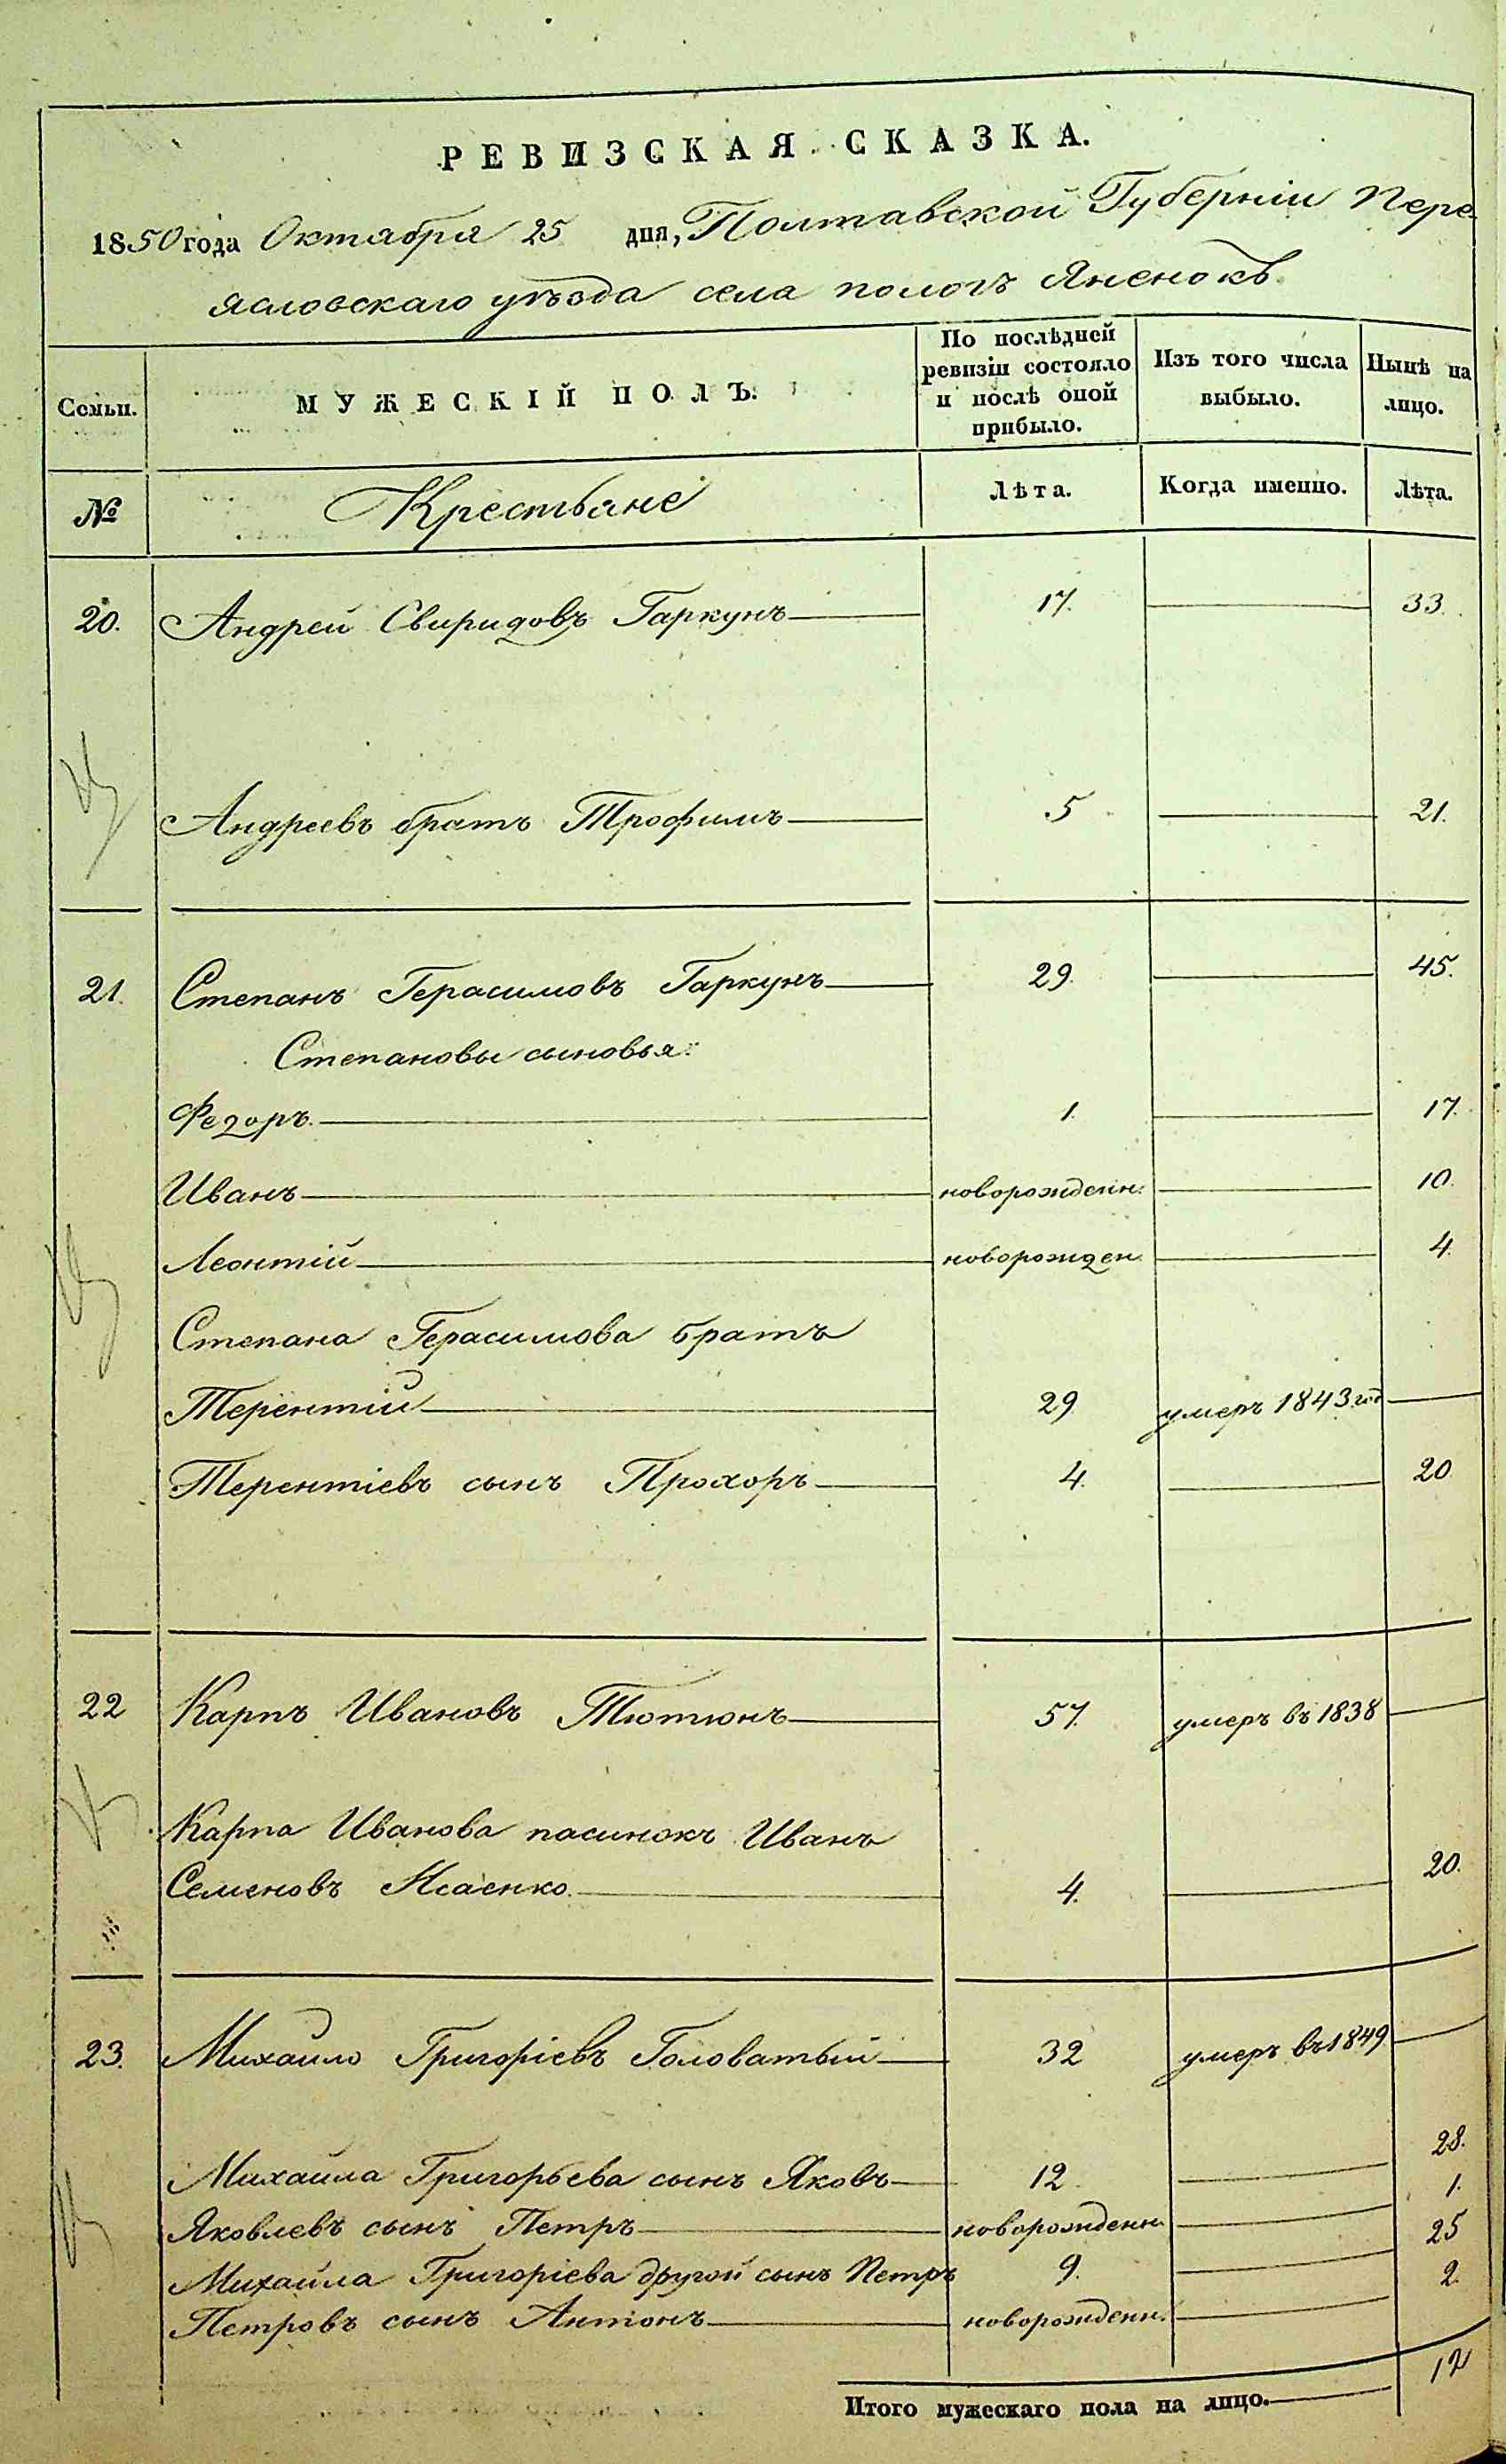 РЕВИЗСКАЯ СКАЗКА.
1850 года Октября 25 дня, Полтавской Губерніи Пере-
яславскаго уѣзда села пологъ Яненокъ
Семьи.
МУЖЕСКІЙ ПОЛЪ.
По послѣдней ревизіи состояло и послѣ оной прибыло.
Изъ того числа выбыло.
Нынѣ на лицо.
№ Крестьяне Лѣта. Когда именно. Лѣта.
20. Андрей Свиридовъ Гаркунъ 17. 33.
Андреевъ братъ Трофимъ 5 21.
21. Степанъ Герасимовъ Гаркунъ 29. 45.
Степановы сыновья:
Федоръ 1. 17.
Иванъ новорожденн: 10.
Леонтій новорожден 4.
Степана Герасимова братъ
Терентій 29. умеръ 1843 год
Терентіевъ сынъ Прохоръ 4. 20
22 Карпъ Ивановъ Тютюнъ 57. умеръ въ 1838
Карпа Иванова пасинокъ Иванъ
Семеновъ Исаенко. 4. 20.
23. Михайло Григоріевъ Головатый 32 умеръ въ 1849
Михайла Григорьева сынъ Яковъ 12 28.
Яковлевъ сынъ Петръ новорожденн 1.
Михайла Григоріева другой сынъ Петръ 9. 25
Петровъ сынъ Антонъ новорожденн. 2.
Итого мужескаго пола на лицо. 12